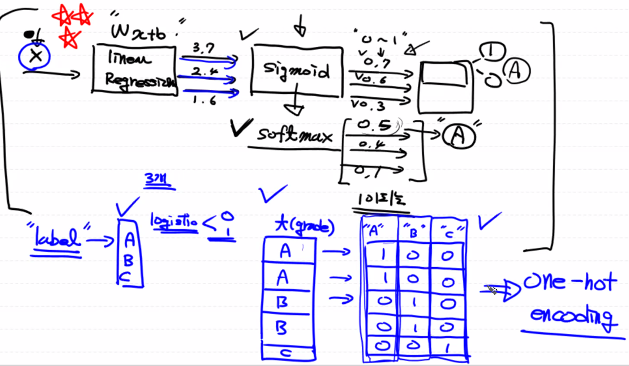 "Wx+b"
x
linear
Regression
3.7
2.4
1.6
Sigmoid
"0~1"
0.7
0.6
0.3
1
0
A
softmax
0.5
0.4
0.1
"A"
3개
"label"
A
B
C
logistic
0
1
t(grade)
A
A
B
B
C
"A" "B" "C"
1 0 0
1 0 0
0 1 0
0 1 0
0 0 1
one-hot
encoding